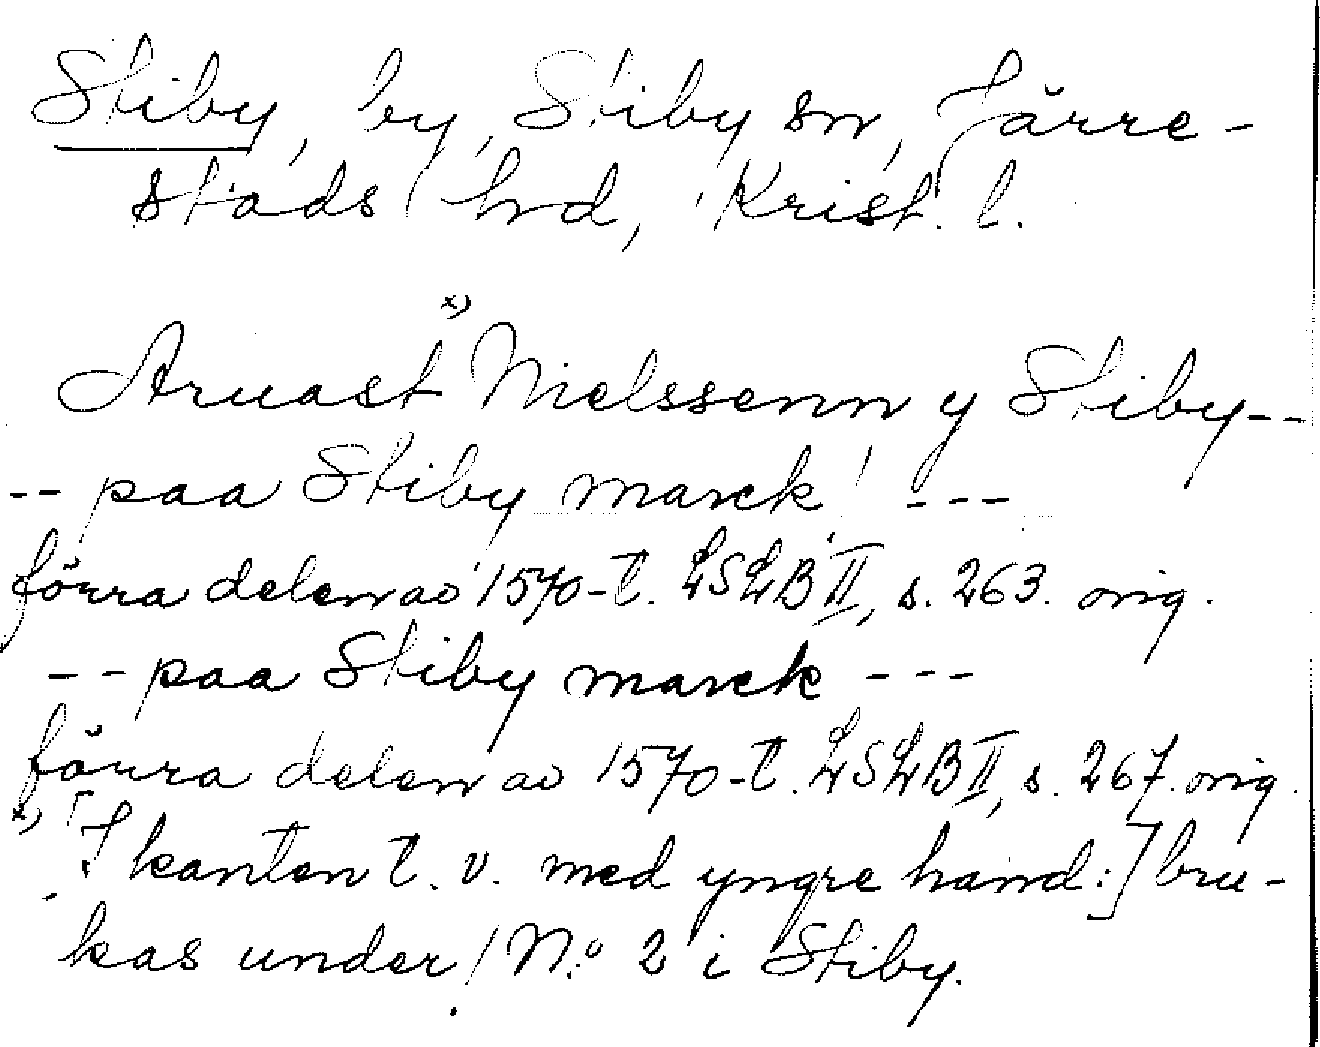 Stiby, by, Stiby sn, Järre-
stads hrd, Krist. l.
x)
Aruast Nielssenn y Stiby--
-- paa Stiby marck ---
förra delen av 1570-t. LSLB II, s. 263. orig.
-- paa Stiby marck ---
förra delen av 1570-t. LSLB II, s. 267. orig.
x) [I kanten t. v. med yngre hand:] bru-
kas under N:o 2 i Stiby.